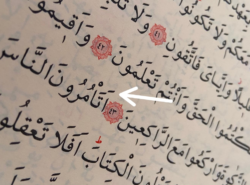 مَعَكُمْ وَلَا تَكُونُوا
وَإِيَّايَ فَاتَّقُونِ ٤١ وَلَا
الْحَقَّ وَأَنْتُمْ تَعْلَمُونَ ٤٢ وَأَقِيمُوا
وَارْكَعُوا مَعَ الرَّاكِعِينَ ٤٣ أَتَأْمُرُونَ النَّاسَ
الْكِتَابَ أَفَلَا تَعْقِلُو